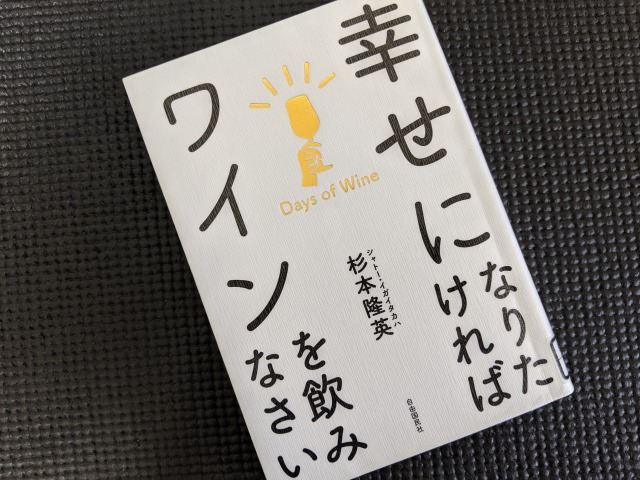 幸せになりたければ
ワインを飲みなさい
Days of Wine
シャトー・イガイタカハ
杉本隆英
自由国民社